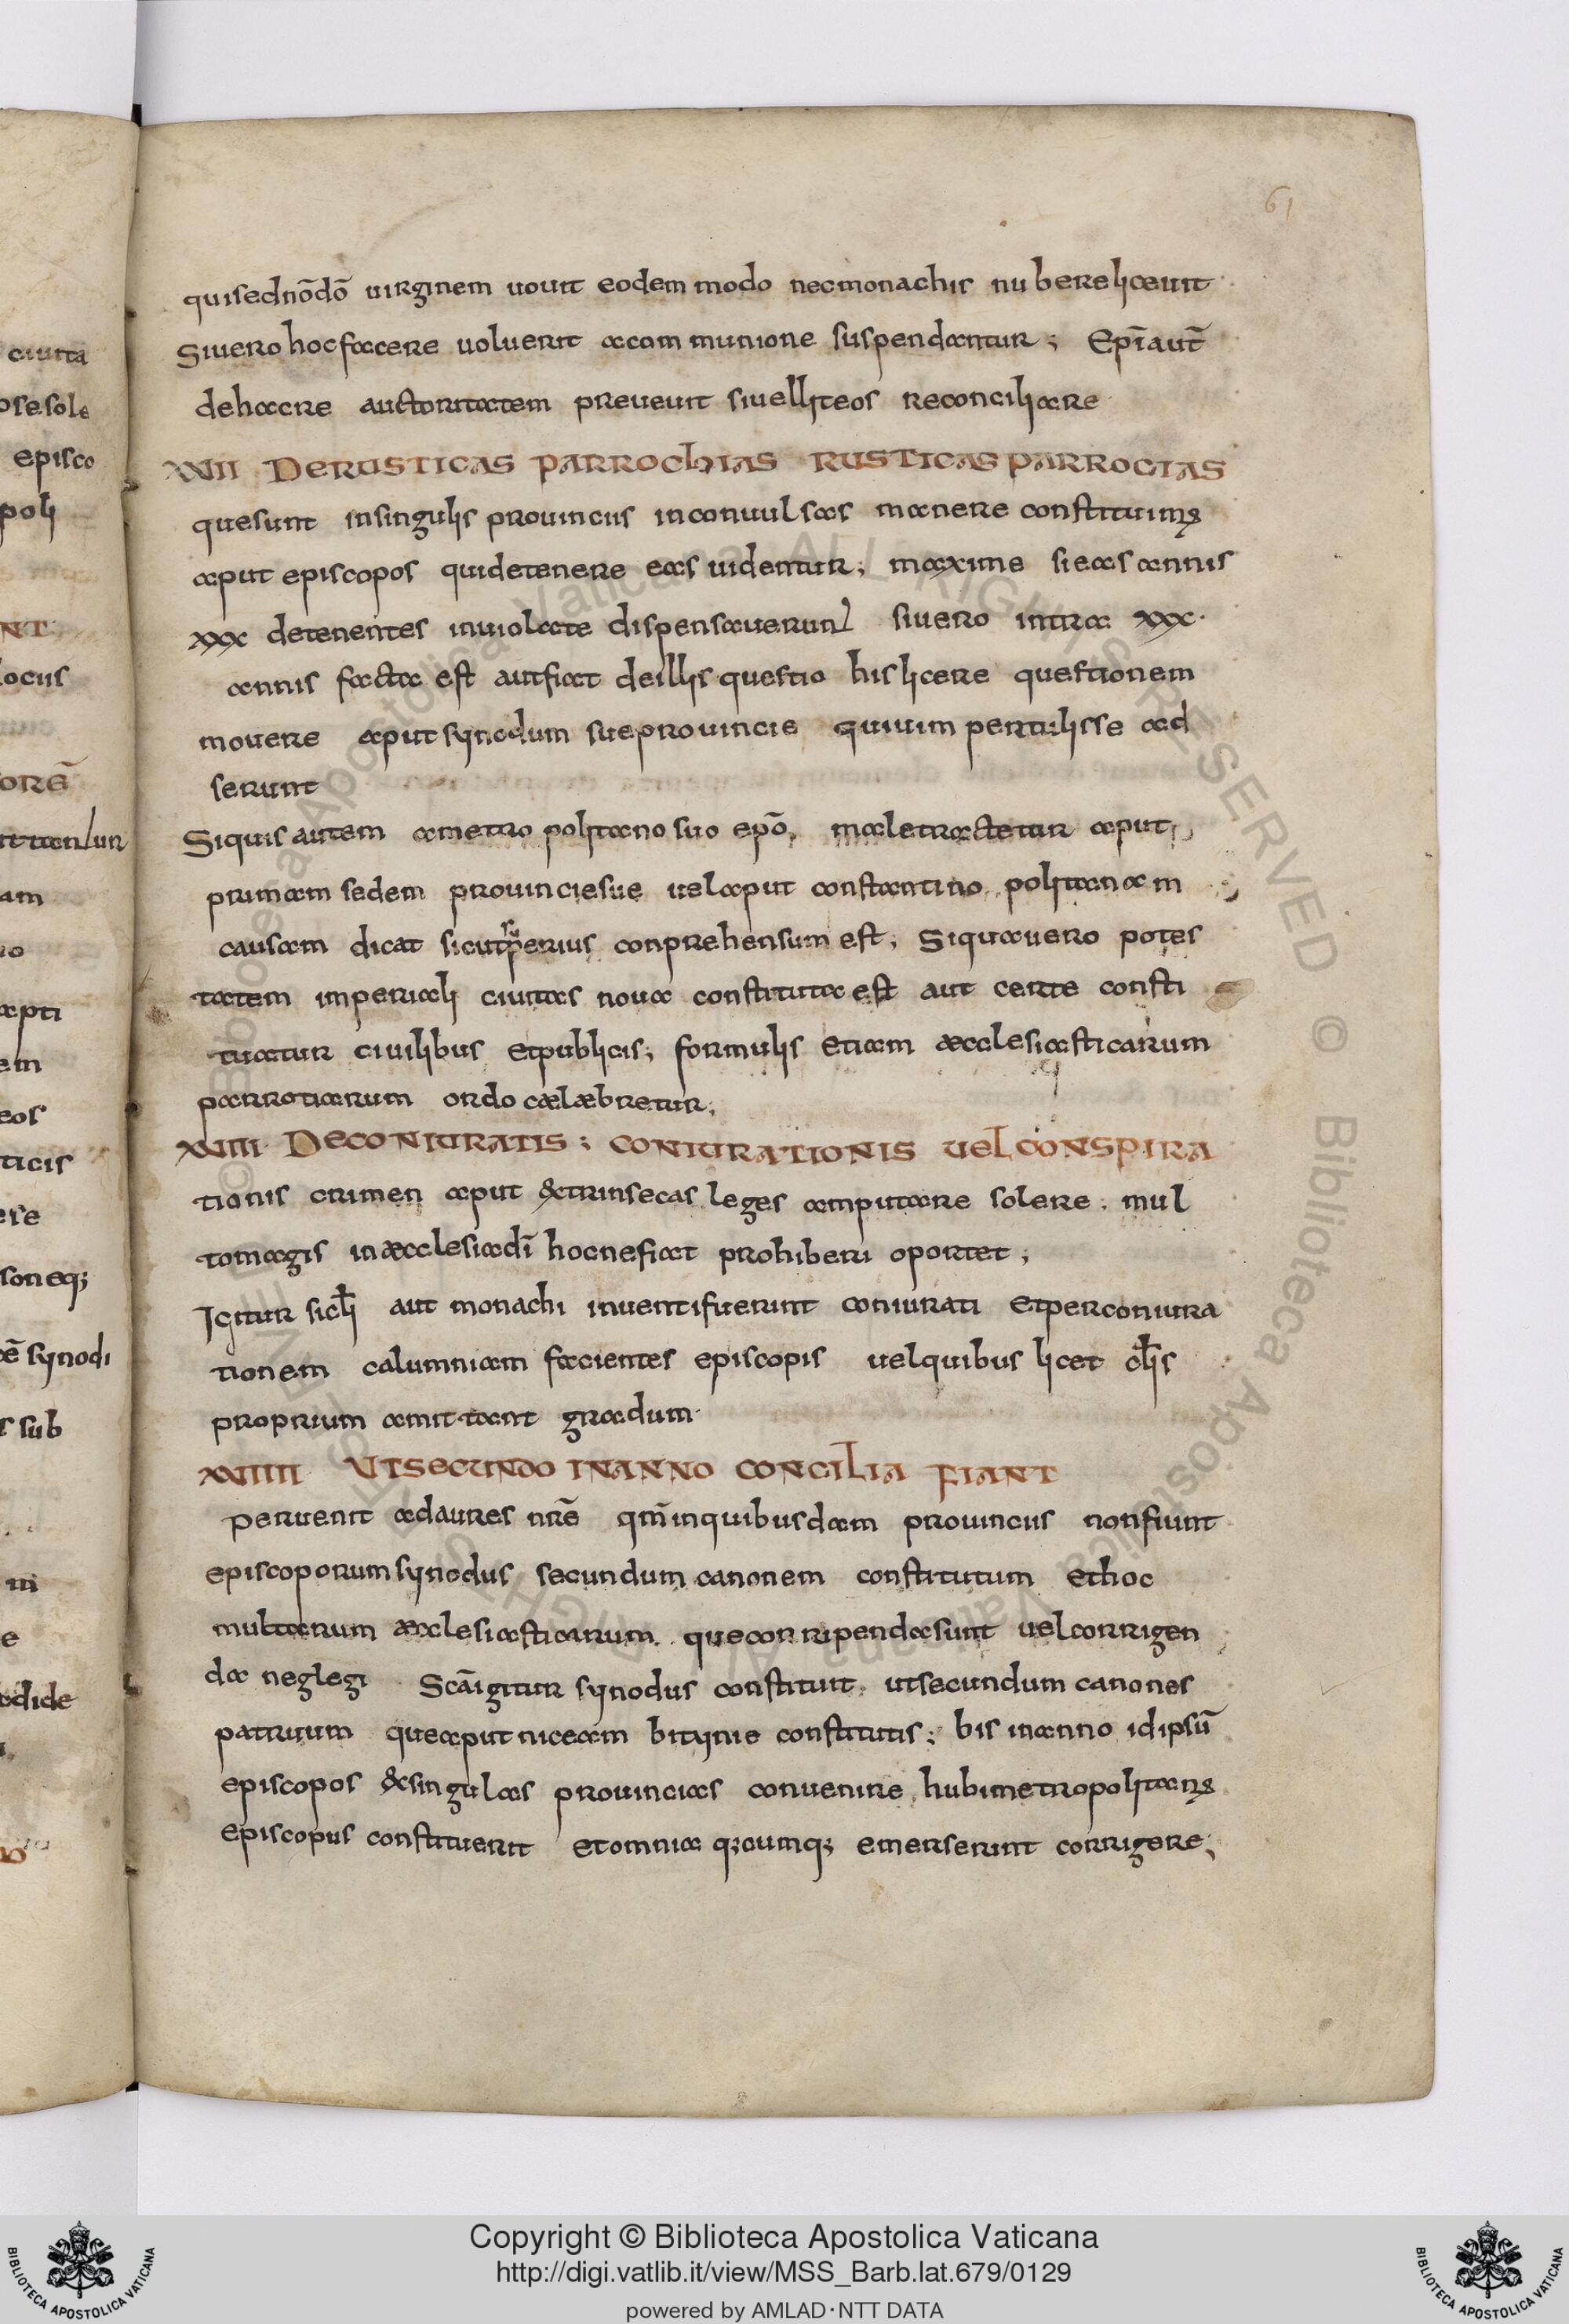 61
quisednōdō uirginem uouit eodem modo necmonachis nubereliceuit
Siuero hocfacere uoluerit acommunione suspendantur; Epīaut̄
dehacre auctoritatem preueuit siuelliteos reconciliare
XXII DERUSTICAS PARROChIAS RUSTICAS PARROCIAS
quesunt insingulis prouinciis inconuulsas manere constituimꝰ
aput episcopos quidetenere eas uidentur; maxime sieas annis
xxx detenentes inuiolate dispensauerunt siuero intra xxx.
annis facta est autfiat deillis questio his licere questionem
mouere aput synodum sueprouincie quiuim pertulisse ad
serunt
Siquis autem ametropolitano suo epō, maletractetur aput
primam sedem prouinciesue uelaput constantinopolitanam
causam dicat sicutsuperius conprehensum est; Siquauero potes
tatem imperiali ciuitas noua constituta est aut certe consti
tuatur ciuilibus etpublicis; formulis etiam æcclesiasticarum
parrotiarum ordo cælæbretur;
XXIII DECONIURATIS; CONIURATIONIS UEL CONSPIRA
tionis crimen aput &trinsecas leges amputare solere. mul
tomagis inæcclesiadī hocnefiat prohiberi oportet;
Igitur siclī aut monachi inuentifuerint coniurati etperconiura
tionem calumniam facientes episcopis uelquibus licet clīs
proprium amittant gradum
XXIIII UTSECUNDO INANNO CONCILIA FIANT
peruenit adaures nrē qm̄inquibusdam prouinciis nonfiunt
episcoporum synodus secundum canonem constitutum ethoc
multarum æcclesiasticarum quecorripendasunt uelcorrigen
da neglegi Scāigitur synodus constituit utsecundum canones
patruum queaput niceam bitynie constitutis; bis inanno idipsū
episcopos &singulas prouincias conuenire hubimetropolitanꝰ
episcopus constituerit etomnia q;cumq; emerserint corrigere;
ciuita
sesole
episco
poli
NT
locus
ORĒ
am
em
eos
ticis
soneq;
synodi
sub
Copyright © Biblioteca Apostolica Vaticana
http://digi.vatlib.it/view/MSS_Barb.lat.679/0129
powered by AMLAD·NTT DATA
BIBLIOTECA APOSTOLICA VATICANA
BIBLIOTECA APOSTOLICA VATICANA